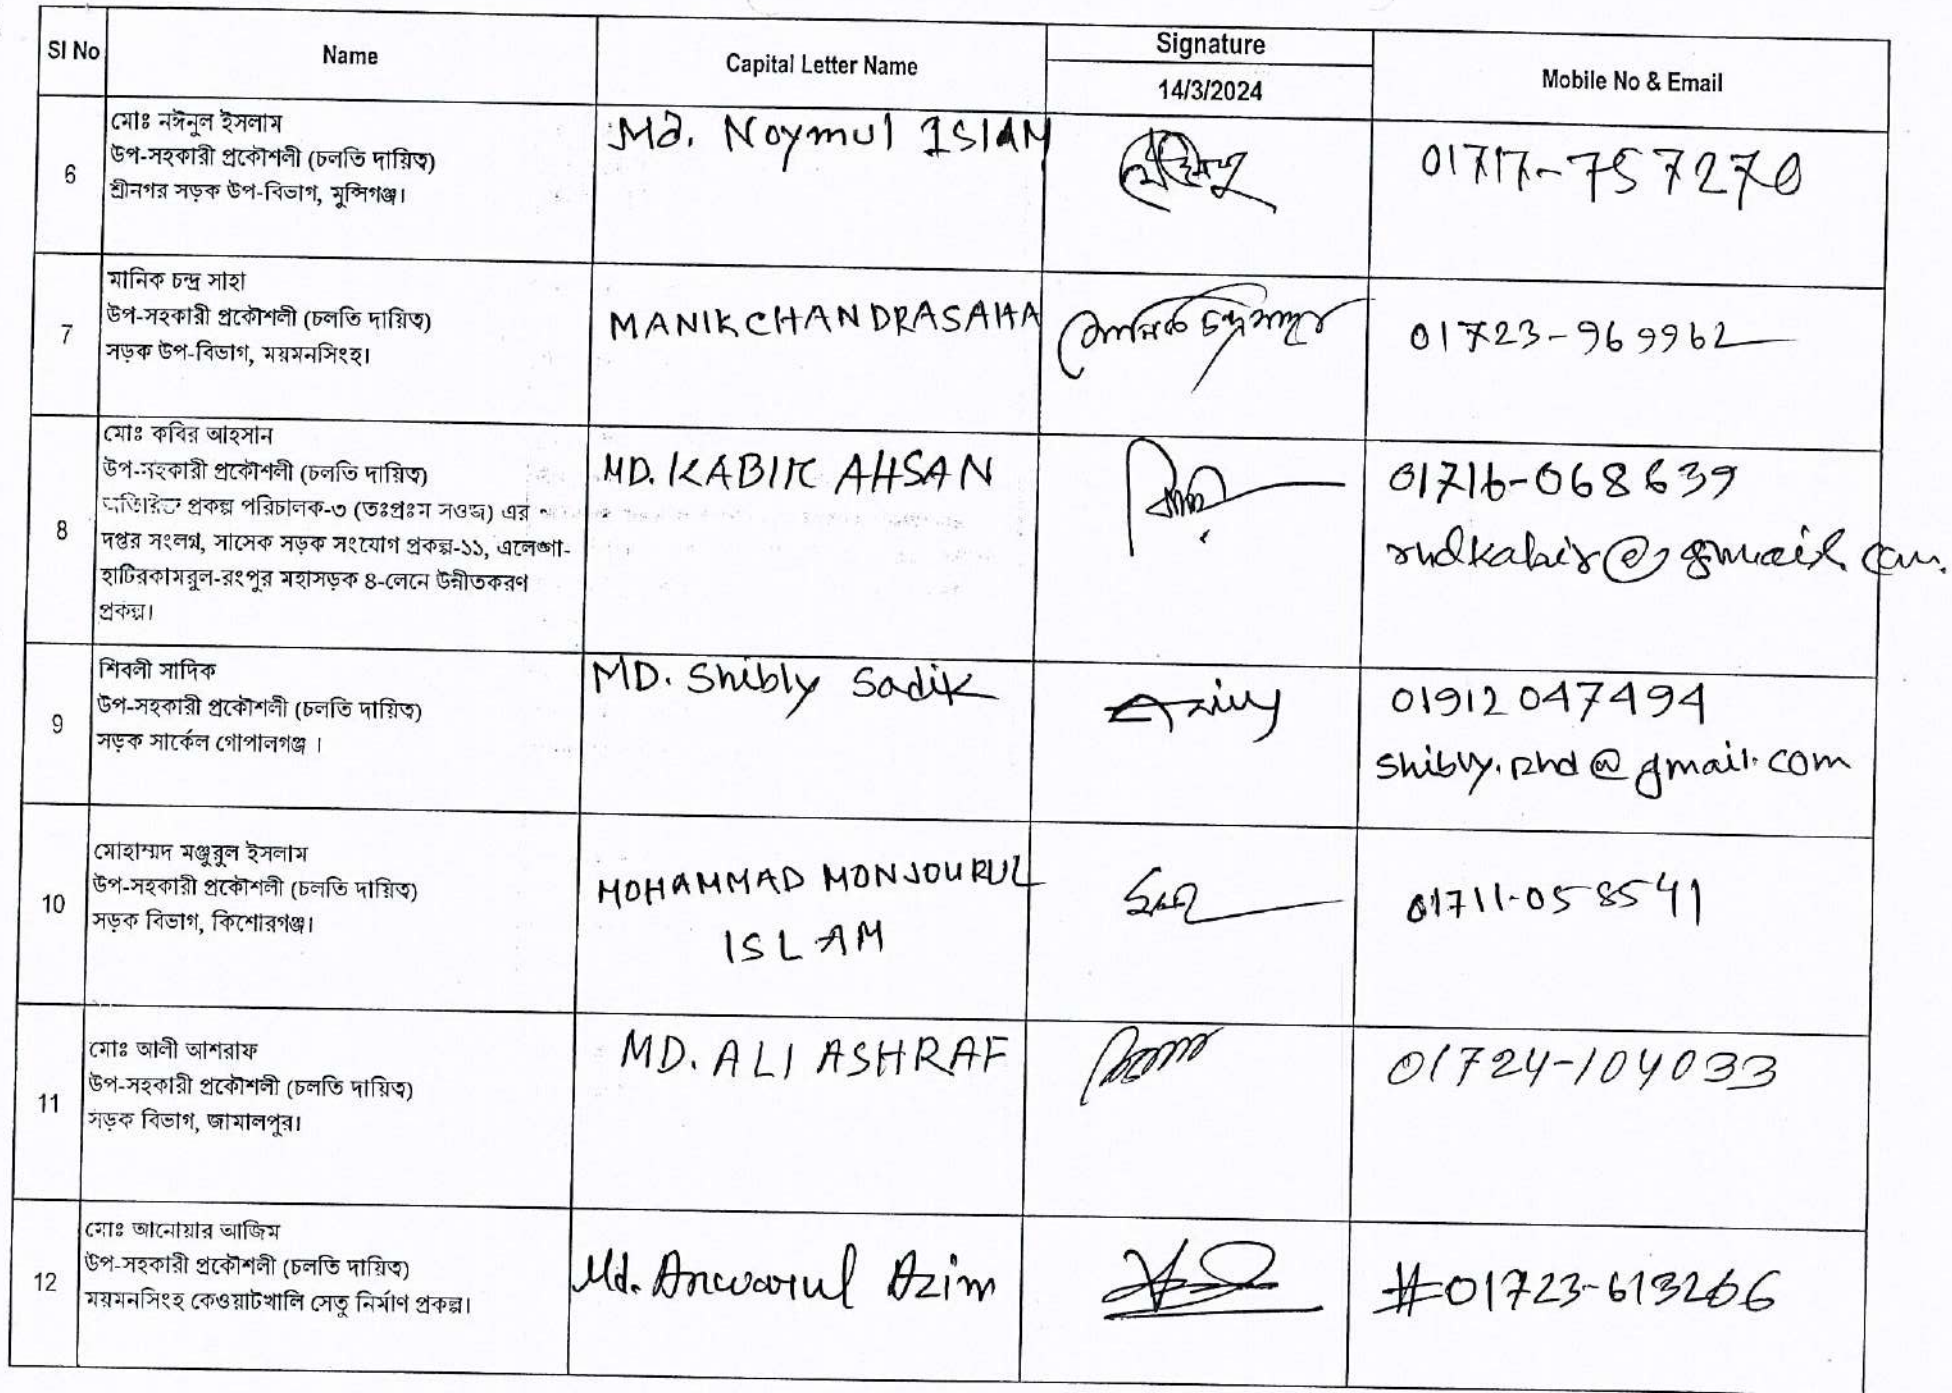 Sl No Name Capital Letter Name Signature Mobile No & Email
14/3/2024
6
মোঃ নঈনুল ইসলাম
উপ-সহকারী প্রকৌশলী (চলতি দায়িত্ব)
শ্রীনগর সড়ক উপ-বিভাগ, মুন্সিগঞ্জ।
Md. Noymul ISLAM
01717-757270
7
মানিক চন্দ্র সাহা
উপ-সহকারী প্রকৌশলী (চলতি দায়িত্ব)
সড়ক উপ-বিভাগ, ময়মনসিংহ।
MANIK CHANDRA SAHA
মানিক চন্দ্র সাহা
01723-969962
8
মোঃ কবির আহসান
উপ-সহকারী প্রকৌশলী (চলতি দায়িত্ব)
অতিরিক্ত প্রকল্প পরিচালক-৩ (তঃপ্রঃম সওজ) এর
দপ্তর সংলগ্ন, সাসেক সড়ক সংযোগ প্রকল্প-১১, এলেঙ্গা-
হাটিরকামরুল-রংপুর মহাসড়ক ৪-লেনে উন্নীতকরণ
প্রকল্প।
MD. KABIR AHSAN
01716-068639
rhdkabir@gmail.com.
9
শিবলী সাদিক
উপ-সহকারী প্রকৌশলী (চলতি দায়িত্ব)
সড়ক সার্কেল গোপালগঞ্জ ।
MD. Shibly Sadik
01912 047494
shibly.rhd@gmail.com
10
মোহাম্মদ মঞ্জুরুল ইসলাম
উপ-সহকারী প্রকৌশলী (চলতি দায়িত্ব)
সড়ক বিভাগ, কিশোরগঞ্জ।
MOHAMMAD MONJOURUL
ISLAM
01711-058541
11
মোঃ আলী আশরাফ
উপ-সহকারী প্রকৌশলী (চলতি দায়িত্ব)
সড়ক বিভাগ, জামালপুর।
MD. ALI ASHRAF
01724-104033
12
মোঃ আনোয়ার আজিম
উপ-সহকারী প্রকৌশলী (চলতি দায়িত্ব)
ময়মনসিংহ কেওয়াটখালি সেতু নির্মাণ প্রকল্প।
Md. Anwarul Azim
#01723-613266